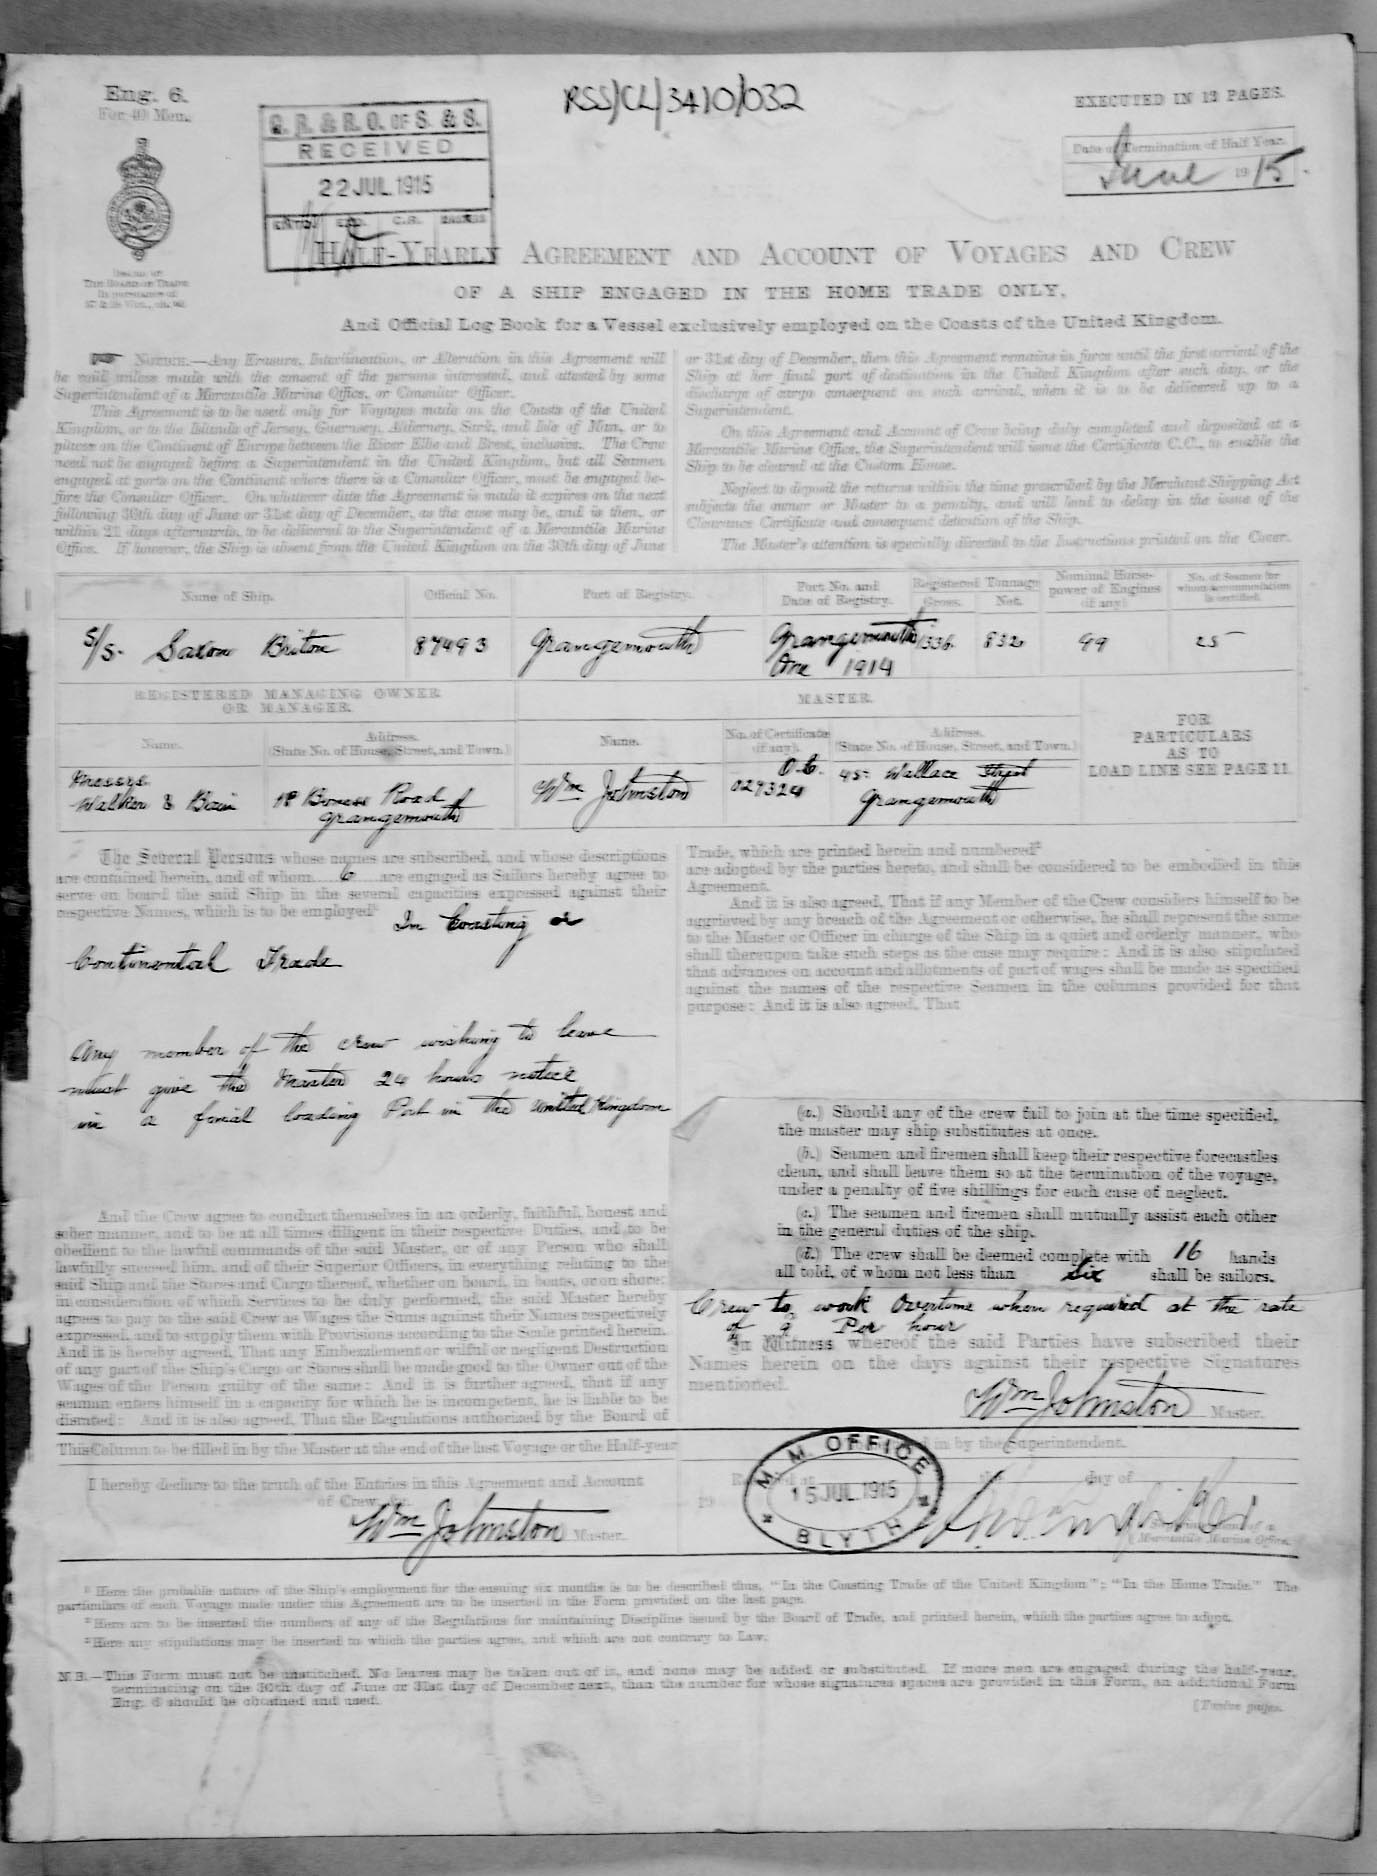 Eng. 6.
For 40 Men.
RSS/CL/3410/032
EXECUTED IN 12 PAGES.
G. R. & R. O. OF S. & S.
RECEIVED
22 JUL 1915
Date of Termination of Half Year.
June 1915.
ISSUED BY
THE BOARD OF TRADE
HALF-YEARLY AGREEMENT AND ACCOUNT OF VOYAGES AND CREW
OF A SHIP ENGAGED IN THE HOME TRADE ONLY,
And Official Log Book for a Vessel exclusively employed on the Coasts of the United Kingdom.
NOTICE.—Any Erasure, Interlineation, or Alteration in this Agreement will
be void unless made with the consent of the persons interested, and attested by some
Superintendent of a Mercantile Marine Office, or Consular Officer.
This Agreement is to be used only for Voyages made on the Coasts of the United
Kingdom, or to the Islands of Jersey, Guernsey, Alderney, Sark, and Isle of Man, or to
places on the Continent of Europe between the River Elbe and Brest, inclusive. The Crew
need not be engaged before a Superintendent in the United Kingdom, but all Seamen
engaged at ports on the Continent where there is a Consular Officer, must be engaged be-
fore the Consular Officer. On whatever date the Agreement is made it expires on the next
following 30th day of June or 31st day of December, as the case may be, and is then, or
within 21 days afterwards, to be delivered to the Superintendent of a Mercantile Marine
Office. If however, the Ship is absent from the United Kingdom on the 30th day of June
or 31st day of December, then this Agreement remains in force until the first arrival of the
Ship at her final port of destination in the United Kingdom after such day, or the
discharge of cargo consequent on such arrival, when it is to be delivered up to a
Superintendent.
On this Agreement and Account of Crew being duly completed and deposited at a
Mercantile Marine Office, the Superintendent will issue the Certificate C.C., to enable the
Ship to be cleared at the Custom House.
Neglect to deposit the returns within the time prescribed by the Merchant Shipping Act
subjects the owner or Master to a penalty, and will lead to delay in the issue of the
Clearance Certificate and consequent detention of the Ship.
The Master's attention is specially directed to the Instructions printed on the Cover.
Name of Ship. Official No. Port of Registry. Port No. and Date of Registry. Registered Tonnage Gross. Net. Nominal Horse-power of Engines (if any) No. of Seamen for whom accommodation is certified.
S/S. Saxon Briton 87493 Grangemouth Grangemouth One 1914 1336. 832 99 25
REGISTERED MANAGING OWNER OR MANAGER.
MASTER.
Name. Address. (State No. of House, Street, and Town.) Name. No. of Certificate (if any). Address. (State No. of House, Street, and Town.)
FOR
PARTICULARS
AS TO
LOAD LINE SEE PAGE 11.
Messrs. Walker & Bain 18 Boness Road Grangemouth Wm Johnston O.C. 027324 45 Wallace Street Grangemouth
The Several Persons whose names are subscribed, and whose descriptions
are contained herein, and of whom 6 are engaged as Sailors hereby agree to
serve on board the said Ship in the several capacities expressed against their
respective Names, which is to be employed¹ In Coasting or
Continental Trade
Any member of the crew wishing to leave
must give the Master 24 hours notice
in a final loading Port in the United Kingdom
And the Crew agree to conduct themselves in an orderly, faithful, honest and
sober manner, and to be at all times diligent in their respective Duties, and to be
obedient to the lawful commands of the said Master, or of any Person who shall
lawfully succeed him, and of their Superior Officers, in everything relating to the
said Ship and the Stores and Cargo thereof, whether on board, in boats, or on shore:
in consideration of which Services to be duly performed, the said Master hereby
agrees to pay to the said Crew as Wages the Sums against their Names respectively
expressed, and to supply them with Provisions according to the Scale printed herein.
And it is hereby agreed, That any Embezzlement or wilful or negligent Destruction
of any part of the Ship's Cargo or Stores shall be made good to the Owner out of the
Wages of the Person guilty of the same: And it is further agreed, that if any
seaman enters himself in a capacity for which he is incompetent, he is liable to be
disrated: And it is also agreed, That the Regulations authorized by the Board of
Trade, which are printed herein and numbered²
are adopted by the parties hereto, and shall be considered to be embodied in this
Agreement.
And it is also agreed, That if any Member of the Crew considers himself to be
aggrieved by any breach of the Agreement or otherwise, he shall represent the same
to the Master or Officer in charge of the Ship in a quiet and orderly manner, who
shall thereupon take such steps as the case may require: And it is also stipulated
that advances on account and allotments of part of wages shall be made as specified
against the names of the respective Seamen in the columns provided for that
purpose: And it is also agreed, That
(a.) Should any of the crew fail to join at the time specified,
the master may ship substitutes at once.
(b.) Seamen and firemen shall keep their respective forecastles
clean, and shall leave them so at the termination of the voyage,
under a penalty of five shillings for each case of neglect.
(c.) The seamen and firemen shall mutually assist each other
in the general duties of the ship.
(d.) The crew shall be deemed complete with 16 hands
all told, of whom not less than Six shall be sailors.
Crew to work Overtime when required at the rate
of 9 Per hour
In Witness whereof the said Parties have subscribed their
Names herein on the days against their respective Signatures
mentioned.
Wm Johnston Master.
This Column to be filled in by the Master at the end of the last Voyage or the Half-year
in by the Superintendent.
I hereby declare to the truth of the Entries in this Agreement and Account
of Crew, &c.
Wm Johnston Master.
the day of
19
M. M. OFFICE
15 JUL 1915
BLYTH
Superintendent of a
Mercantile Marine Office.
¹ Here the probable nature of the Ship's employment for the ensuing six months is to be described thus, "In the Coasting Trade of the United Kingdom"; "In the Home Trade." The
particulars of each Voyage made under this Agreement are to be inserted in the Form provided on the last page.
² Here are to be inserted the numbers of any of the Regulations for maintaining Discipline issued by the Board of Trade, and printed herein, which the parties agree to adopt.
³ Here any stipulations may be inserted to which the parties agree, and which are not contrary to Law.
N.B.—This Form must not be unstitched. No leaves may be taken out of it, and none may be added or substituted. If more men are engaged during the half-year,
terminating on the 30th day of June or 31st day of December next, than the number for whose signatures spaces are provided in this Form, an additional Form
Eng. 6 should be obtained and used.
[Twelve pages.